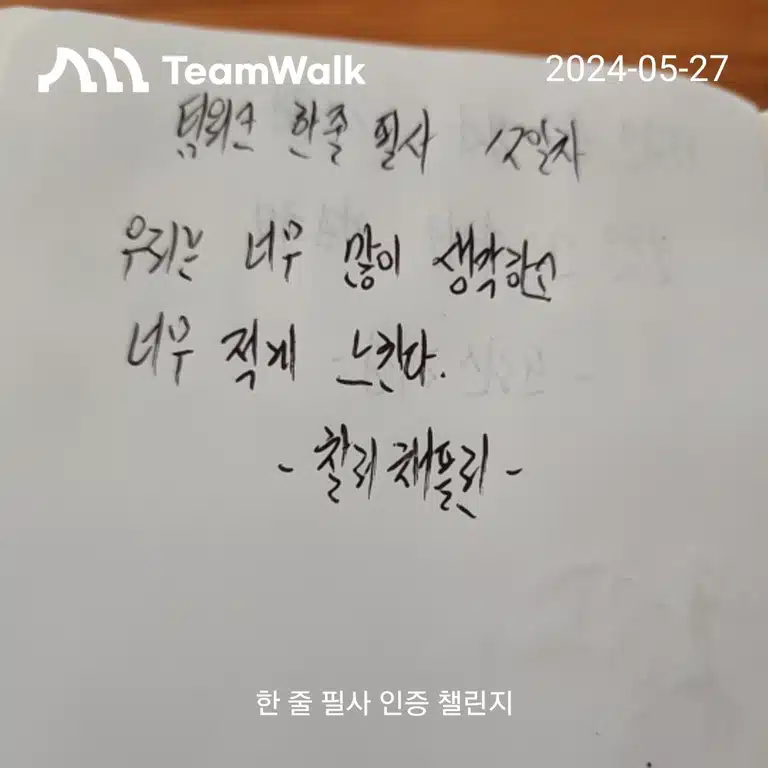 TeamWalk 2024-05-27
팀워크 한줄 필사 12일차
우리는 너무 많이 생각하고
너무 적게 느낀다.
- 찰리 채플린 -
한 줄 필사 인증 챌린지